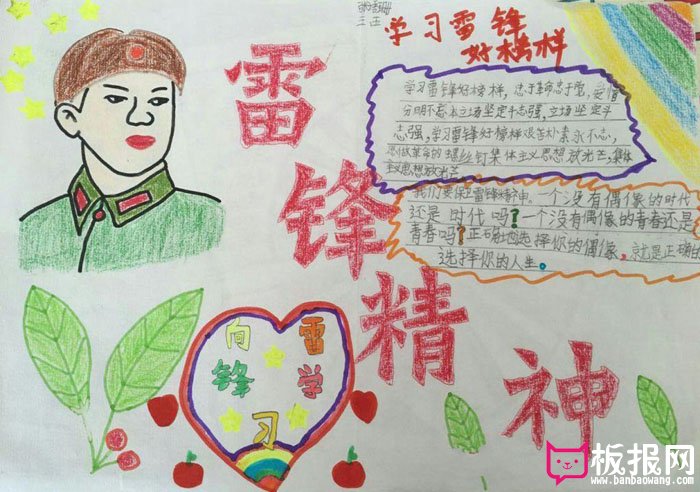 三五
学习雷锋
好榜样
雷锋精神
学习雷锋好榜样，忠于革命忠于党，爱憎
分明不忘本立场坚定斗志强，立场坚定斗
志强，学习雷锋好榜样艰苦朴素永不忘，
愿做革命的螺丝钉集体主义思想放光芒，集体
主义思想放光芒
我们要保上雷锋精神。一个没有偶像的时代
还是时代吗？一个没有偶像的青春还是
青春吗？正确地选择你的偶像，就是正确的
选择你的人生。
向雷
锋学
习
板报网
www.banbaowang.com